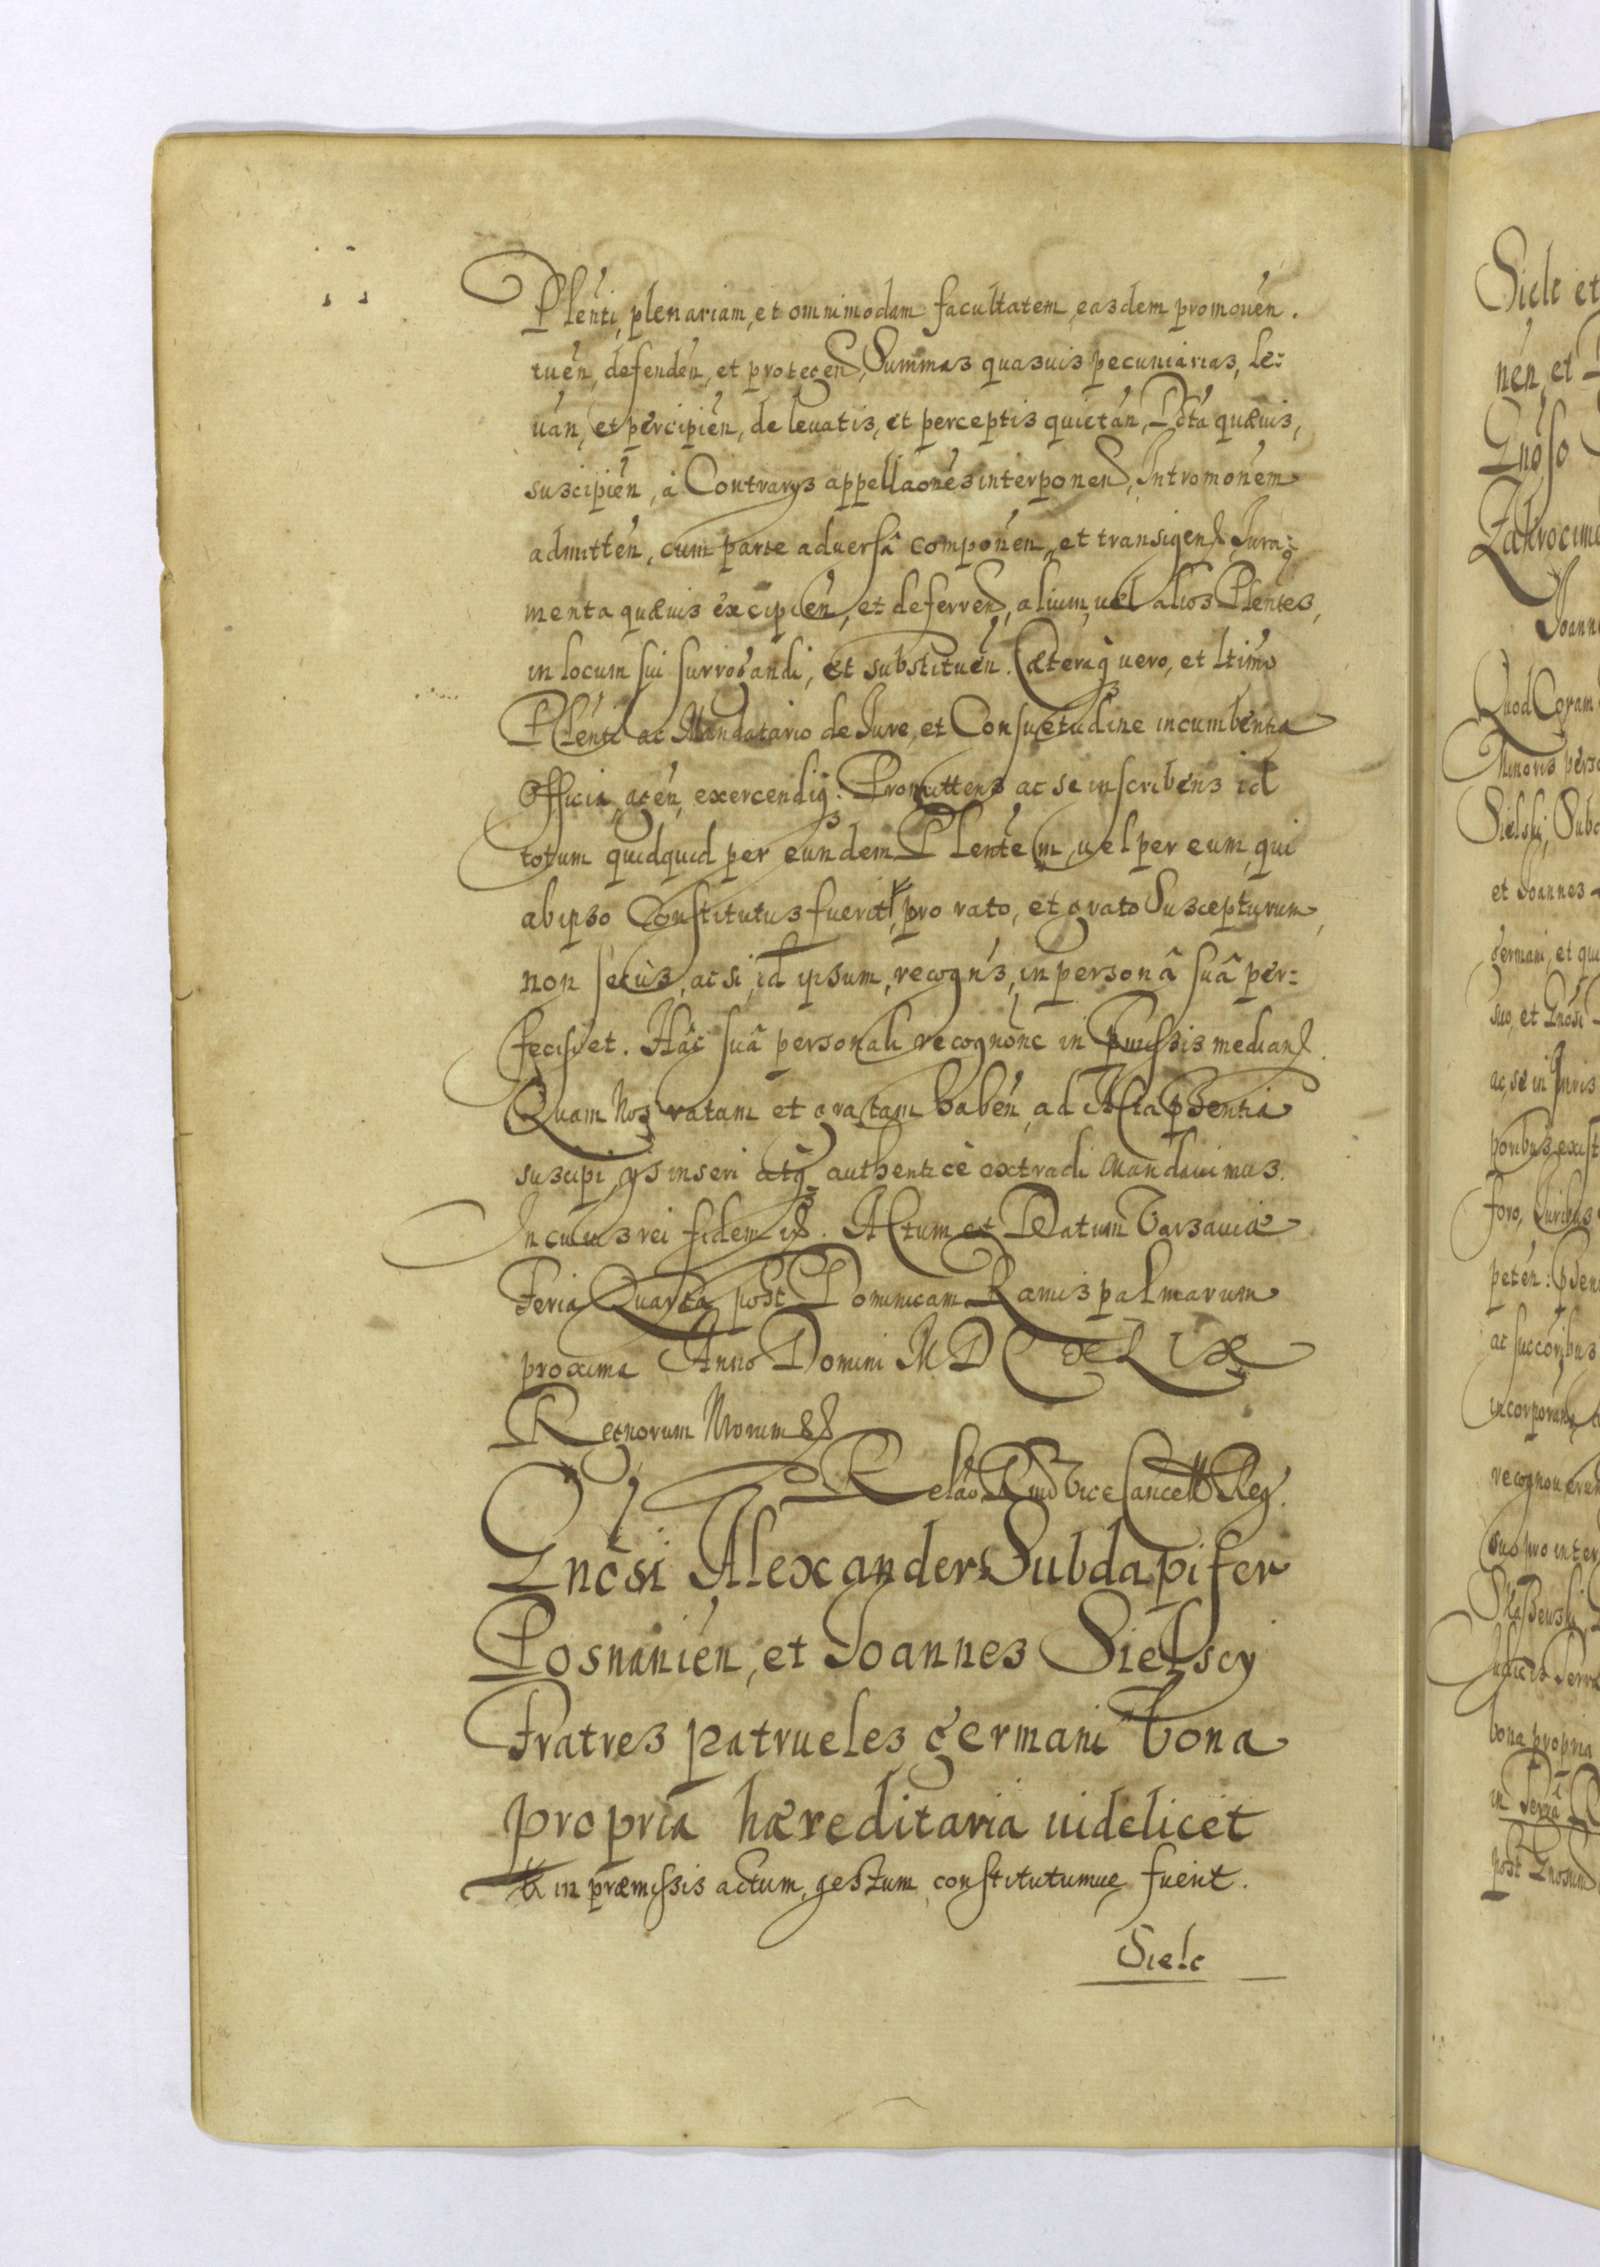 Plenti, plenariam, et omnimodam facultatem easdem promouen.
tuen, defenden, et protegen, Summas quasuis pecuniarias, le=
uan, et percipien, de leuatis, et perceptis quietan, Dcta quæuis,
suscipien, à Contrarys appellaones interponen, Intromonem
admitten, cum parte aduersâ componen, et transigen, Iura=
menta quæuis excipien, et deferren, alium, uel alios Plentes,
in locum sui surrogandi, et substituen. Cæteraq3 uero, et ltimo
Plenti ac Mandatario de Iure, et Consuetudine incumbentia
Officia, agen, exercendiq3. Promittens ac se inscribens id
totum quidquid per eundem Plentem, uel per eum, qui
ab ipso Constitutus fuerit, pro rato, et grato Suscepturum,
non secùs, ac si, id ipsum, recogns, in personâ suâ per=
fecisset. Hâc suâ personali recognone in pmissis median.
Quam Nos ratam et gratam haben, ad Acta psentia
suscipi, ys inseri atq3 authenticè extradi mandauimus.
In cuius rei fidem &. Actum et Datum Varsauiæ
Feria Quarta post Dominicam Ramis palmarum
proxima Anno Domini M D C XL IX
Regnorum Nrorum &&
Relao Rndi Vice Cancell Reg.
Gnosi Alexander Subdapifer
Posnanien, et Ioannes Sielscy
Fratres patrueles germani bona
propria hæreditaria uidelicet
in præmissis actum, gestum, constitutumue fuerit.
Sielc
Sielc et
nen, et
Gnoso
Zakrocim
Ioann
Quod Coram
Minoris perso
Sielski, Subd
et Ioannes
germani, et qu
suo, et Gnosi
ac, se in Iuris
foro,
peten: psen
ac succoribus
incorporan
recognouerun
suo pro inter
Iudicis Terra
bona propria
in Terra
post Gnosum